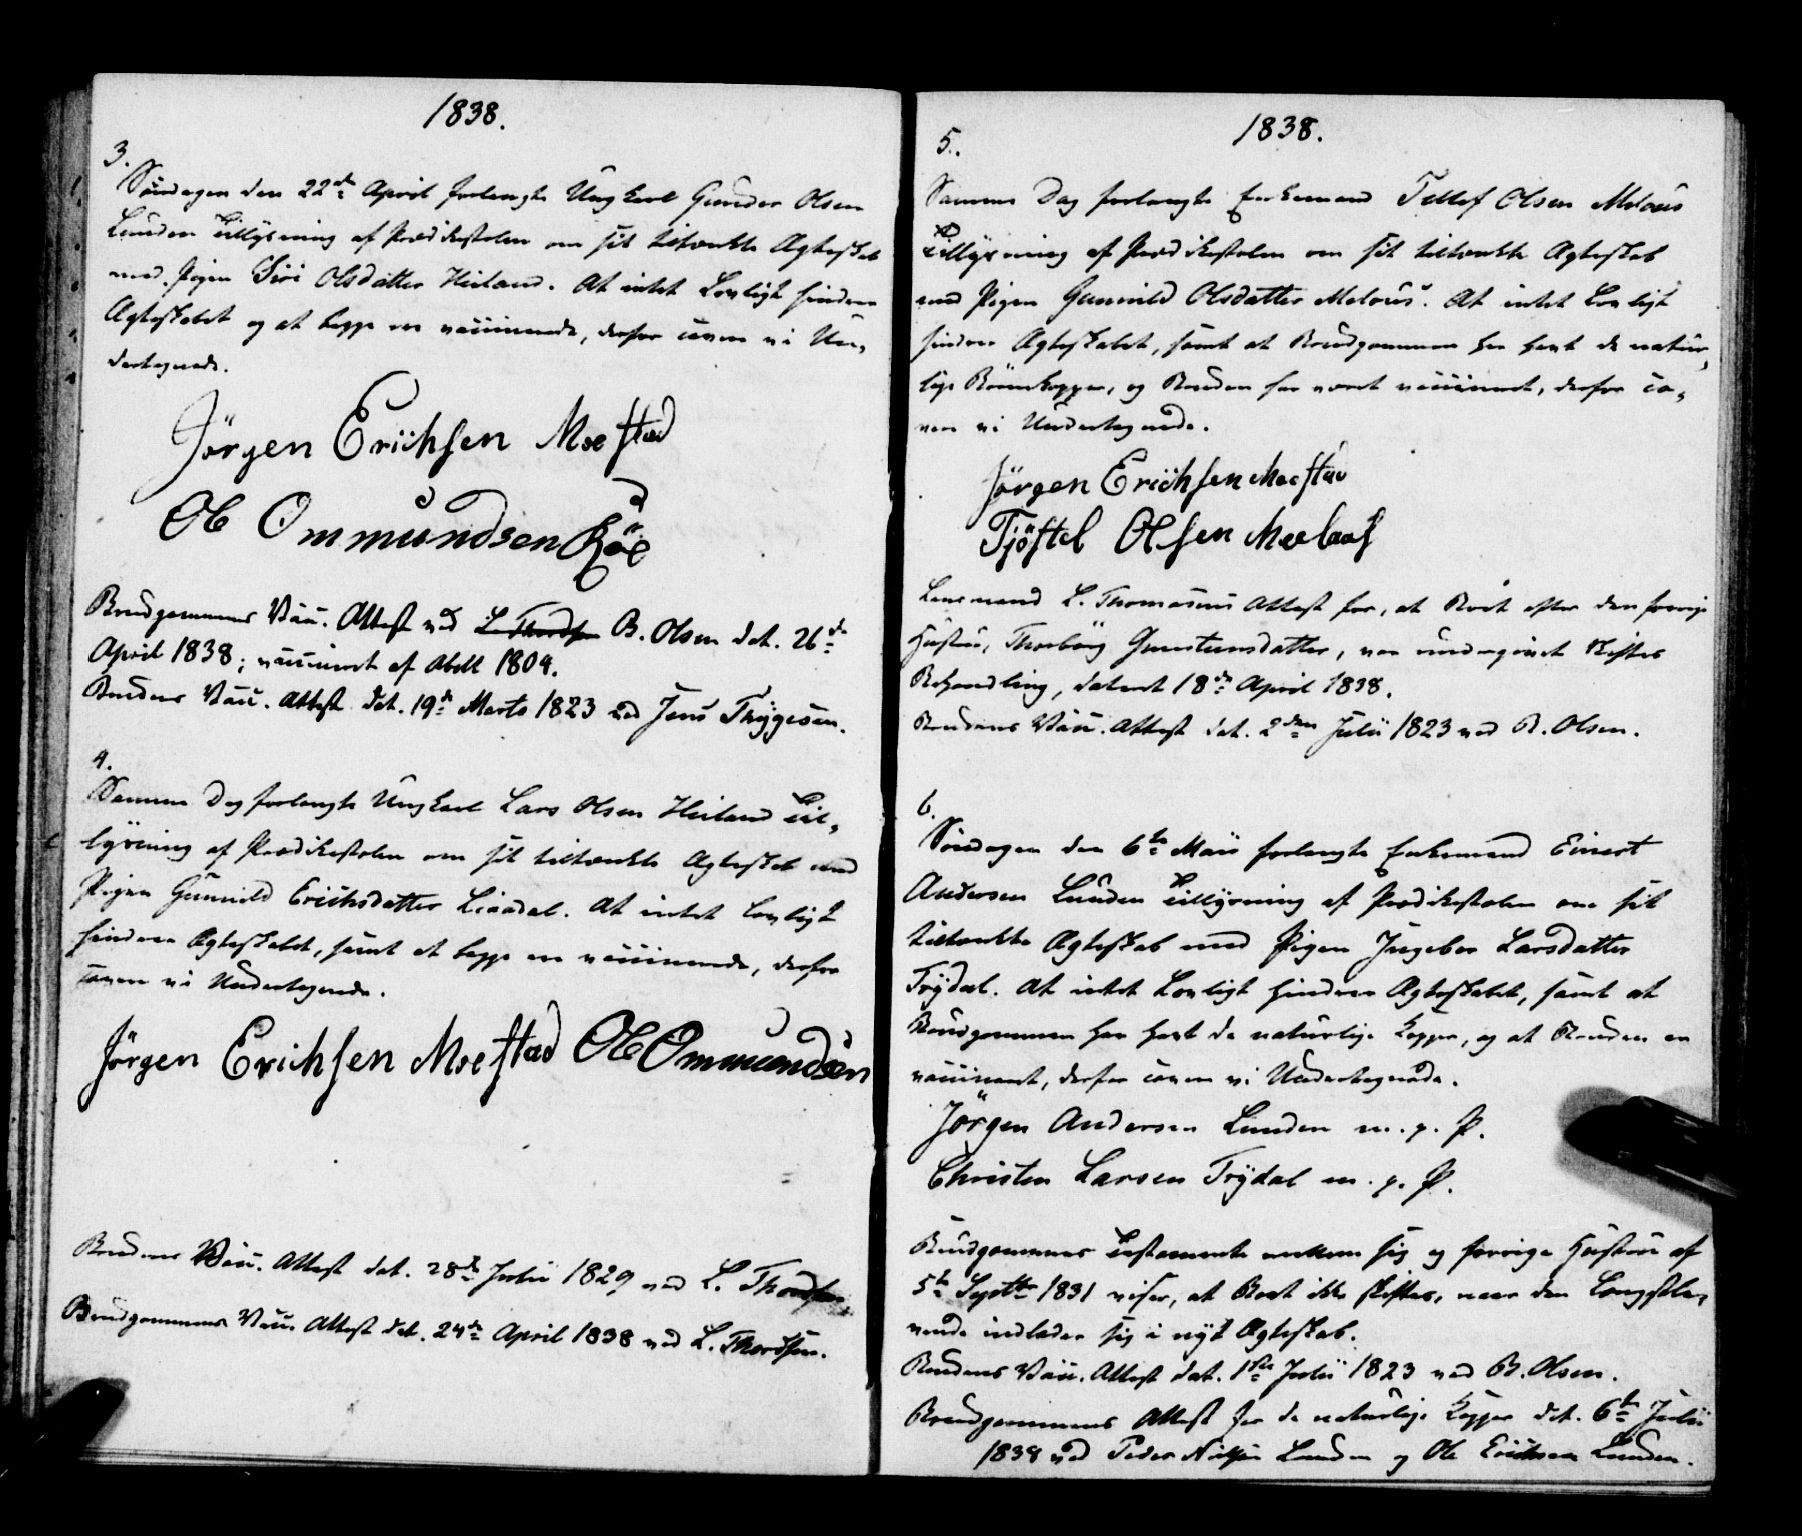 1838.
3.
Søndagen den 22de April forlangte Ungkarl Gunder Olsen
Lunden Tillysning af Prædikestolen om sit tiltænkte Ægteskab
med Pigen Siri Olsdatter Heiland. At intet Lovligt hindrer
Ægteskabet og at begge ere vaccinerede, derfor cavere vi Un-
dertegnede.
Jörgen Erichsen Moestad
Ole Ommundsen Röe
Brudgommens Vacc. Attest ved L. Thordsen B. Olsen dat. 26de
April 1838; vaccineret af Abell 1804.
Brudens Vacc. Attest dat. 19de Marts 1823 ved Jens Thygesen.
4.
Samme Dag forlangte Ungkarl Lars Olsen Heiland Til-
lysning af Prædikestolen om sit tiltænkte Ægteskab med
Pigen Gunnild Erichsdatter Liaadal. At intet Lovligt
hindrer Ægteskabet, samt at begge ere vaccinerede, derfor
cavere vi Undertegnede.
Jörgen Erichsen Moestad Ole Ommundsen
Brudens Vacc. Attest dat. 28de Julii 1829 ved L. Thordsen
Brudgommens Vacc. Attest dat. 24de April 1838 ved L. Thordsen.
1838.
5.
Samme Dag forlangte Enkemand Tellef Olsen Melaas
Tillysning af Prædikestolen om sit tiltænkte Ægteskab
med Pigen Gunnild Olsdatter Melaas. At intet Lovligt
hindrer Ægteskabet, samt at Brudgommen har havt de natur-
lige Børnekopper, og Bruden har været vaccineret, derfor ca-
vere vi Undertegnede.
Jörgen Erichsen Moestad
Tjöstel Olsen Meelaas
Lensmand L. Thomasens Attest for, at Boet efter den forrige
Hustru, Thorborg Gunstensdatter, var undergivet Skiftes
Behandling, dateret 18de April 1838.
Brudens Vacc. Attest dat. 2den Julii 1823 ved B. Olsen.
6.
Søndagen den 6te Maii forlangte Enkemand Einert
Andersen Lunden Tillysning af Prædikestolen om sit
tiltænkte Ægteskab med Pigen Ingebor Larsdatter
Trydal. At intet Lovligt hindrer Ægteskabet, samt at
Brudgommen har havt de naturlige Kopper, og at Bruden er
vaccineret, derfor cavere vi Undertegnede.
Jørgen Andersen Lunden m. p. P.
Christen Larsen Trydal m. p. P.
Brudgommens Testamente mellem sig og forrige Hustru af
5te Septbr 1831 viser, at Boet ikke skiftes, naar den Længstle-
vende indlader sig i nyt Ægteskab.
Brudens Vacc. Attest dat. 1ste Julii 1823 ved B. Olsen.
Brudgommens Attest for de naturlige Kopper dat. 6te Julii
1838 ved Peder Lunden og Ole Erichsen Lunden.